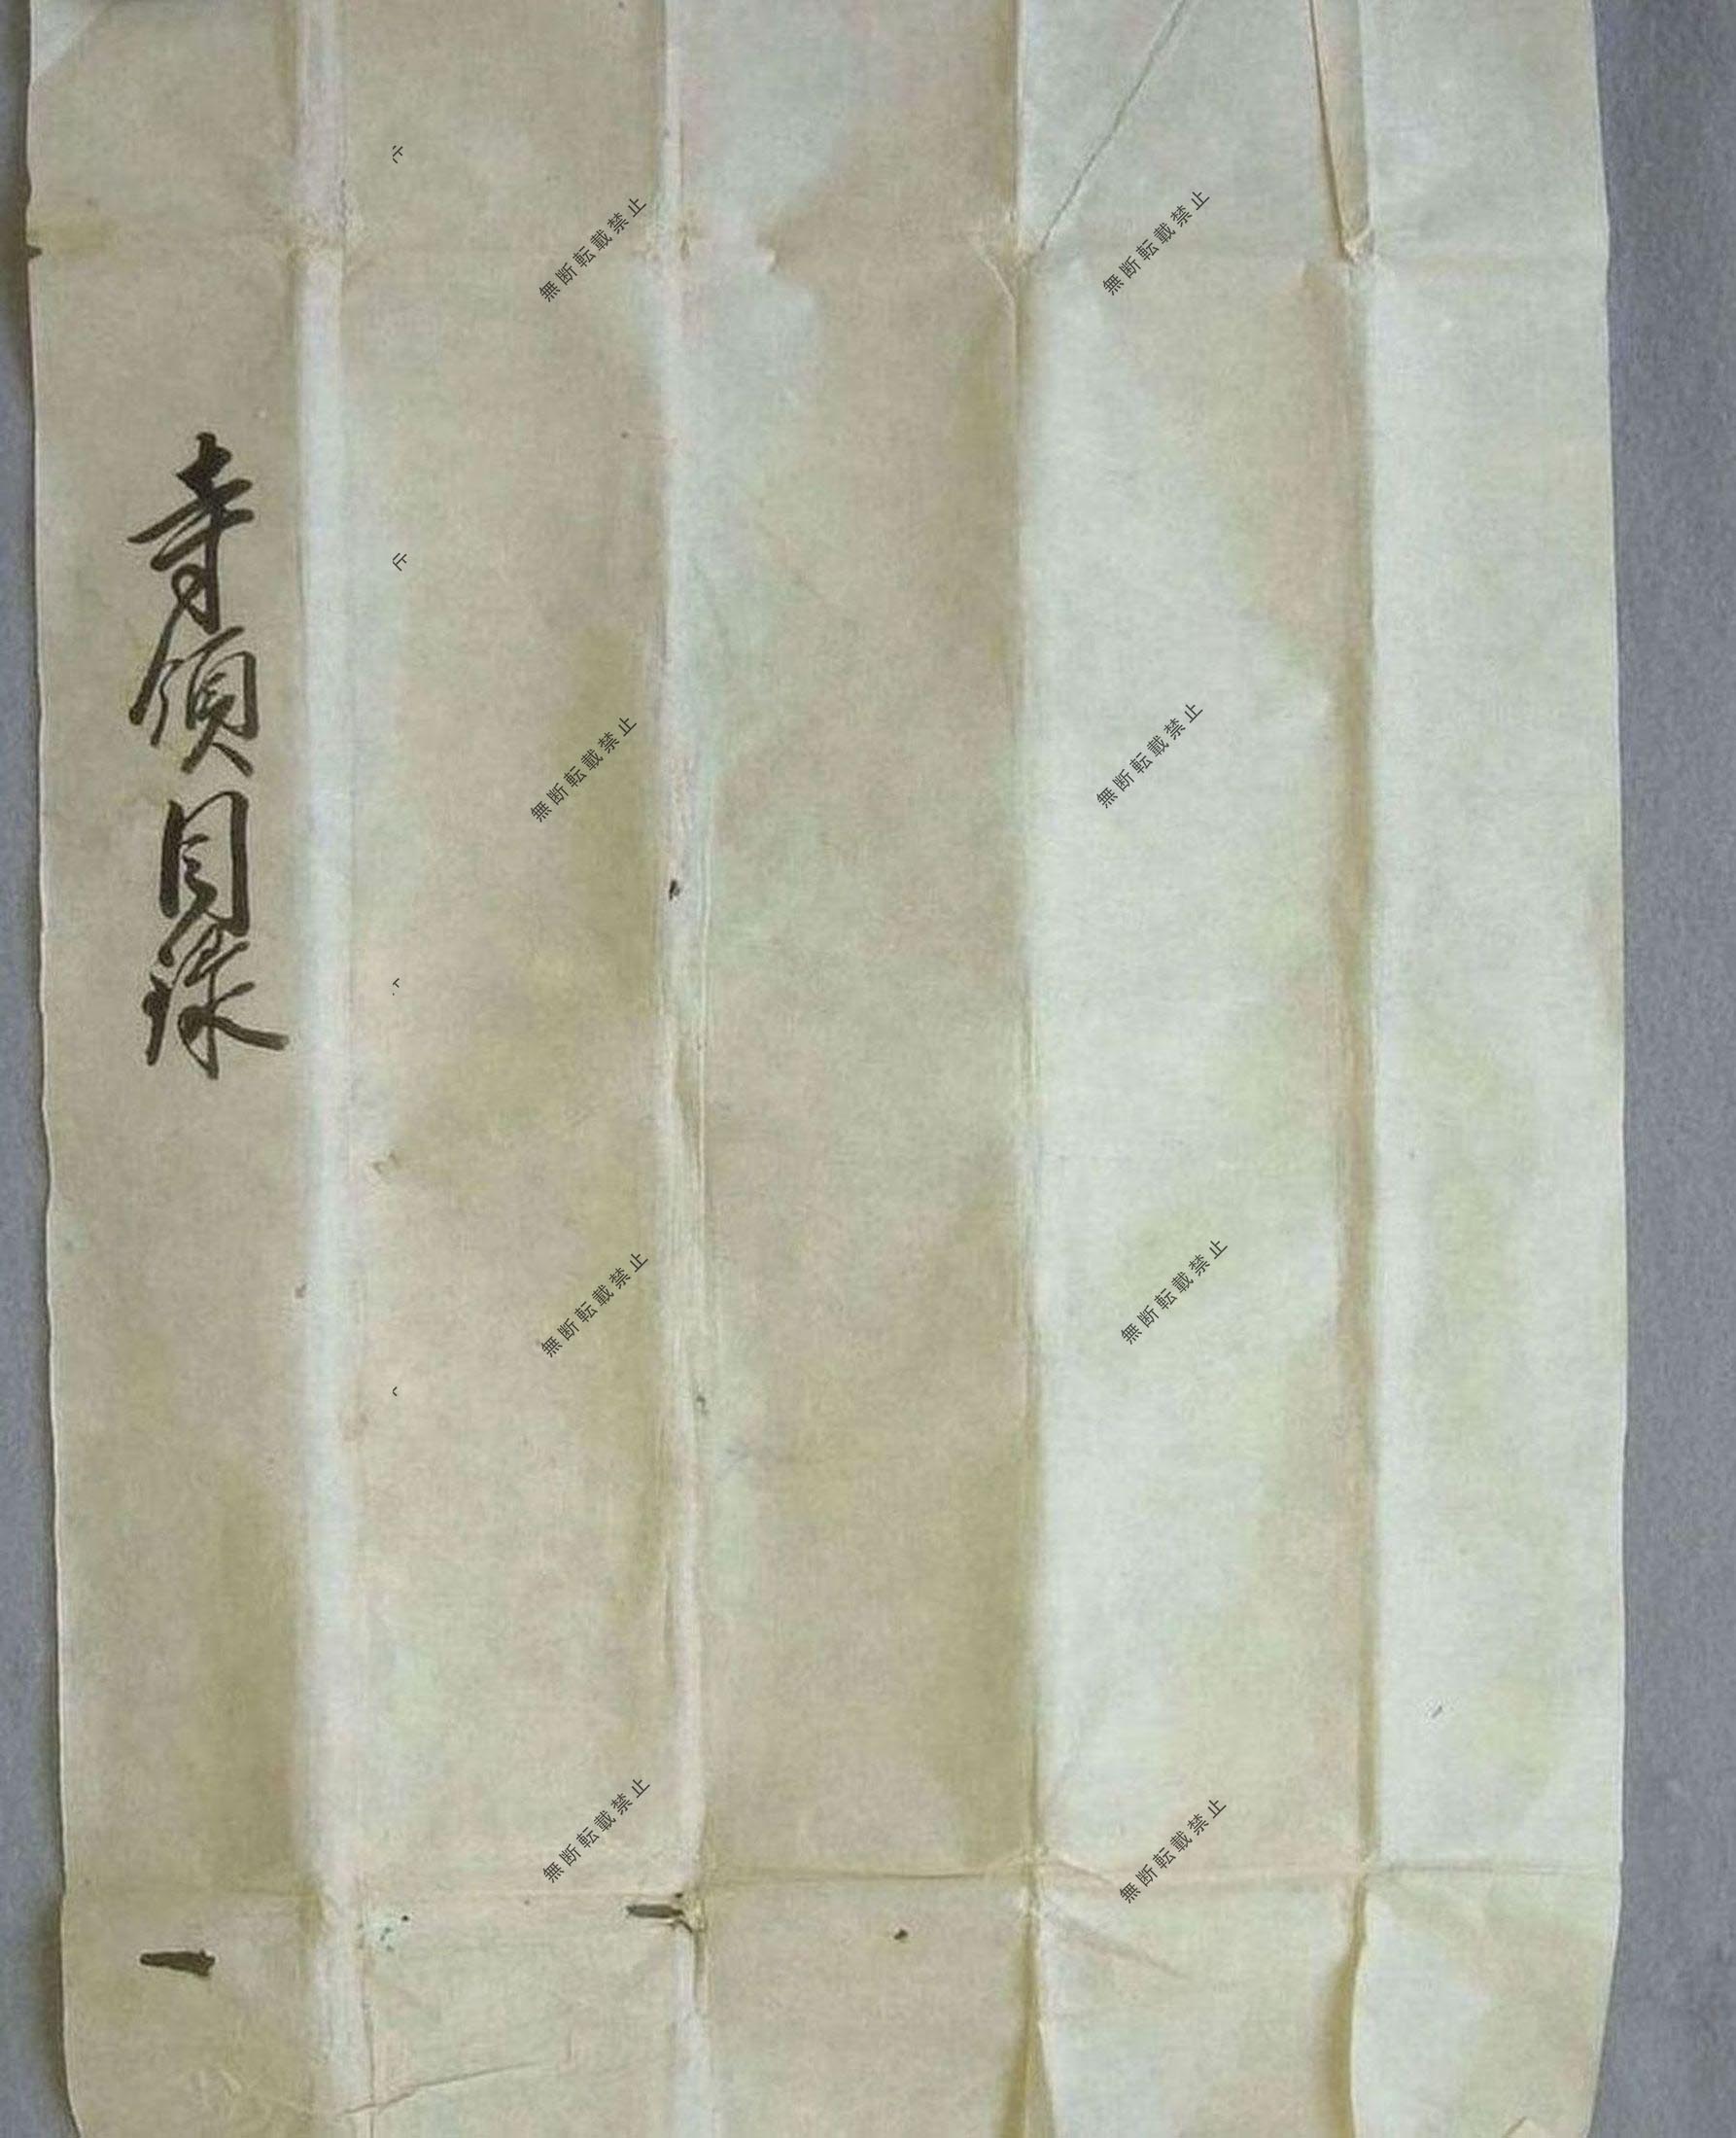 寺領目録
一
無断転載禁止
無断転載禁止
無断転載禁止
無断転載禁止
無断転載禁止
無断転載禁止
無断転載禁止
無断転載禁止